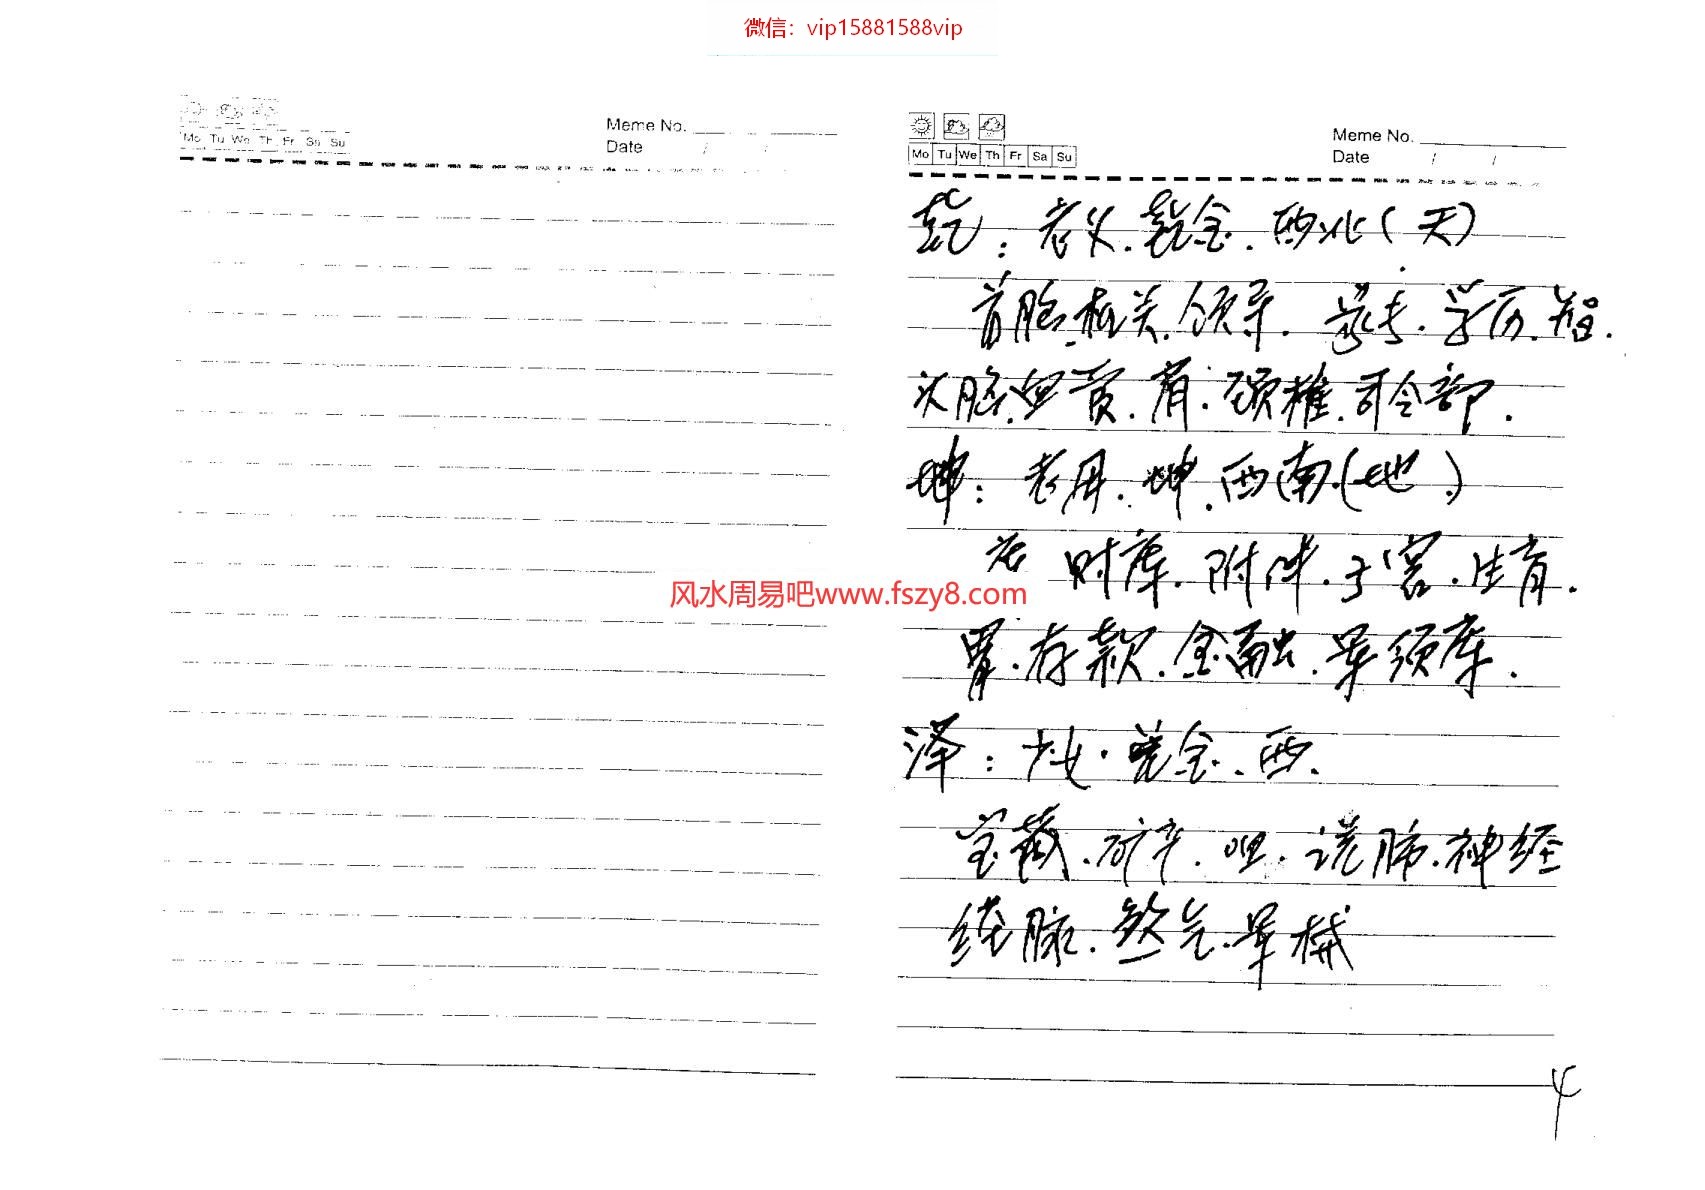 微信：vip15881588vip
Mo Tu We Th Fr Sa Su
Meme No.
Date / /
Mo Tu We Th Fr Sa Su
Meme No.
Date / /
乾：老父.乾金.西北(天)
首脑.相关.领导.学历.
头脑.肩.颈椎.司令部.
坤：老母.坤.西南.(地.)
右 财库.附件.子宫.生育.
风水周易吧www.fszy8.com
胃.存款.金融.军须库.
泽：少女.兑金.西.
宝藏.矿产.咽.肺.神经
线脉.燃气.军械
4